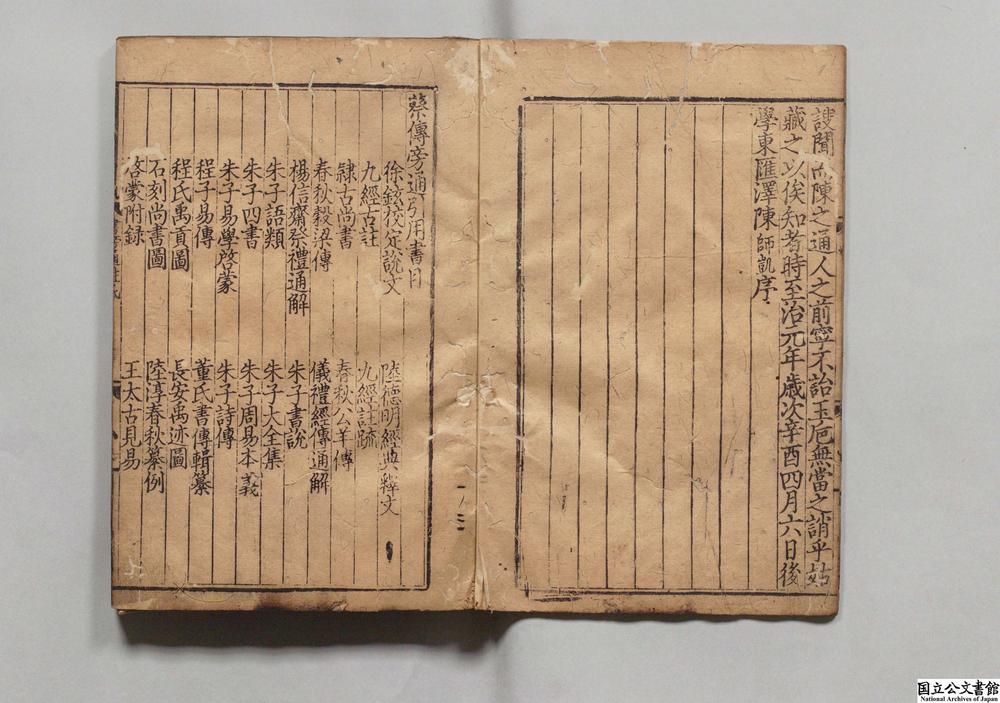 謏聞而陳之通人之前寧不詒玉巵無當之誚乎姑
藏之以俟知者時至治元年歲次辛酉四月六日後
學東匯澤陳師凱序
蔡傳旁通引用書目
徐鉉校定說文 陸德明經典釋文
九經古註 九經註疏
隸古尚書 春秋公羊傳
春秋穀梁傳 儀禮經傳通解
楊信齋祭禮通解 朱子書說
朱子語類 朱子大全集
朱子四書 朱子周易本義
朱子易學啓蒙 朱子詩傳
程子易傳 董氏書傳輯纂
程氏禹貢圖 長安禹迹圖
石刻尚書圖 陸淳春秋纂例
啓蒙附録 王太古見易
国立公文書館
National Archives of Japan